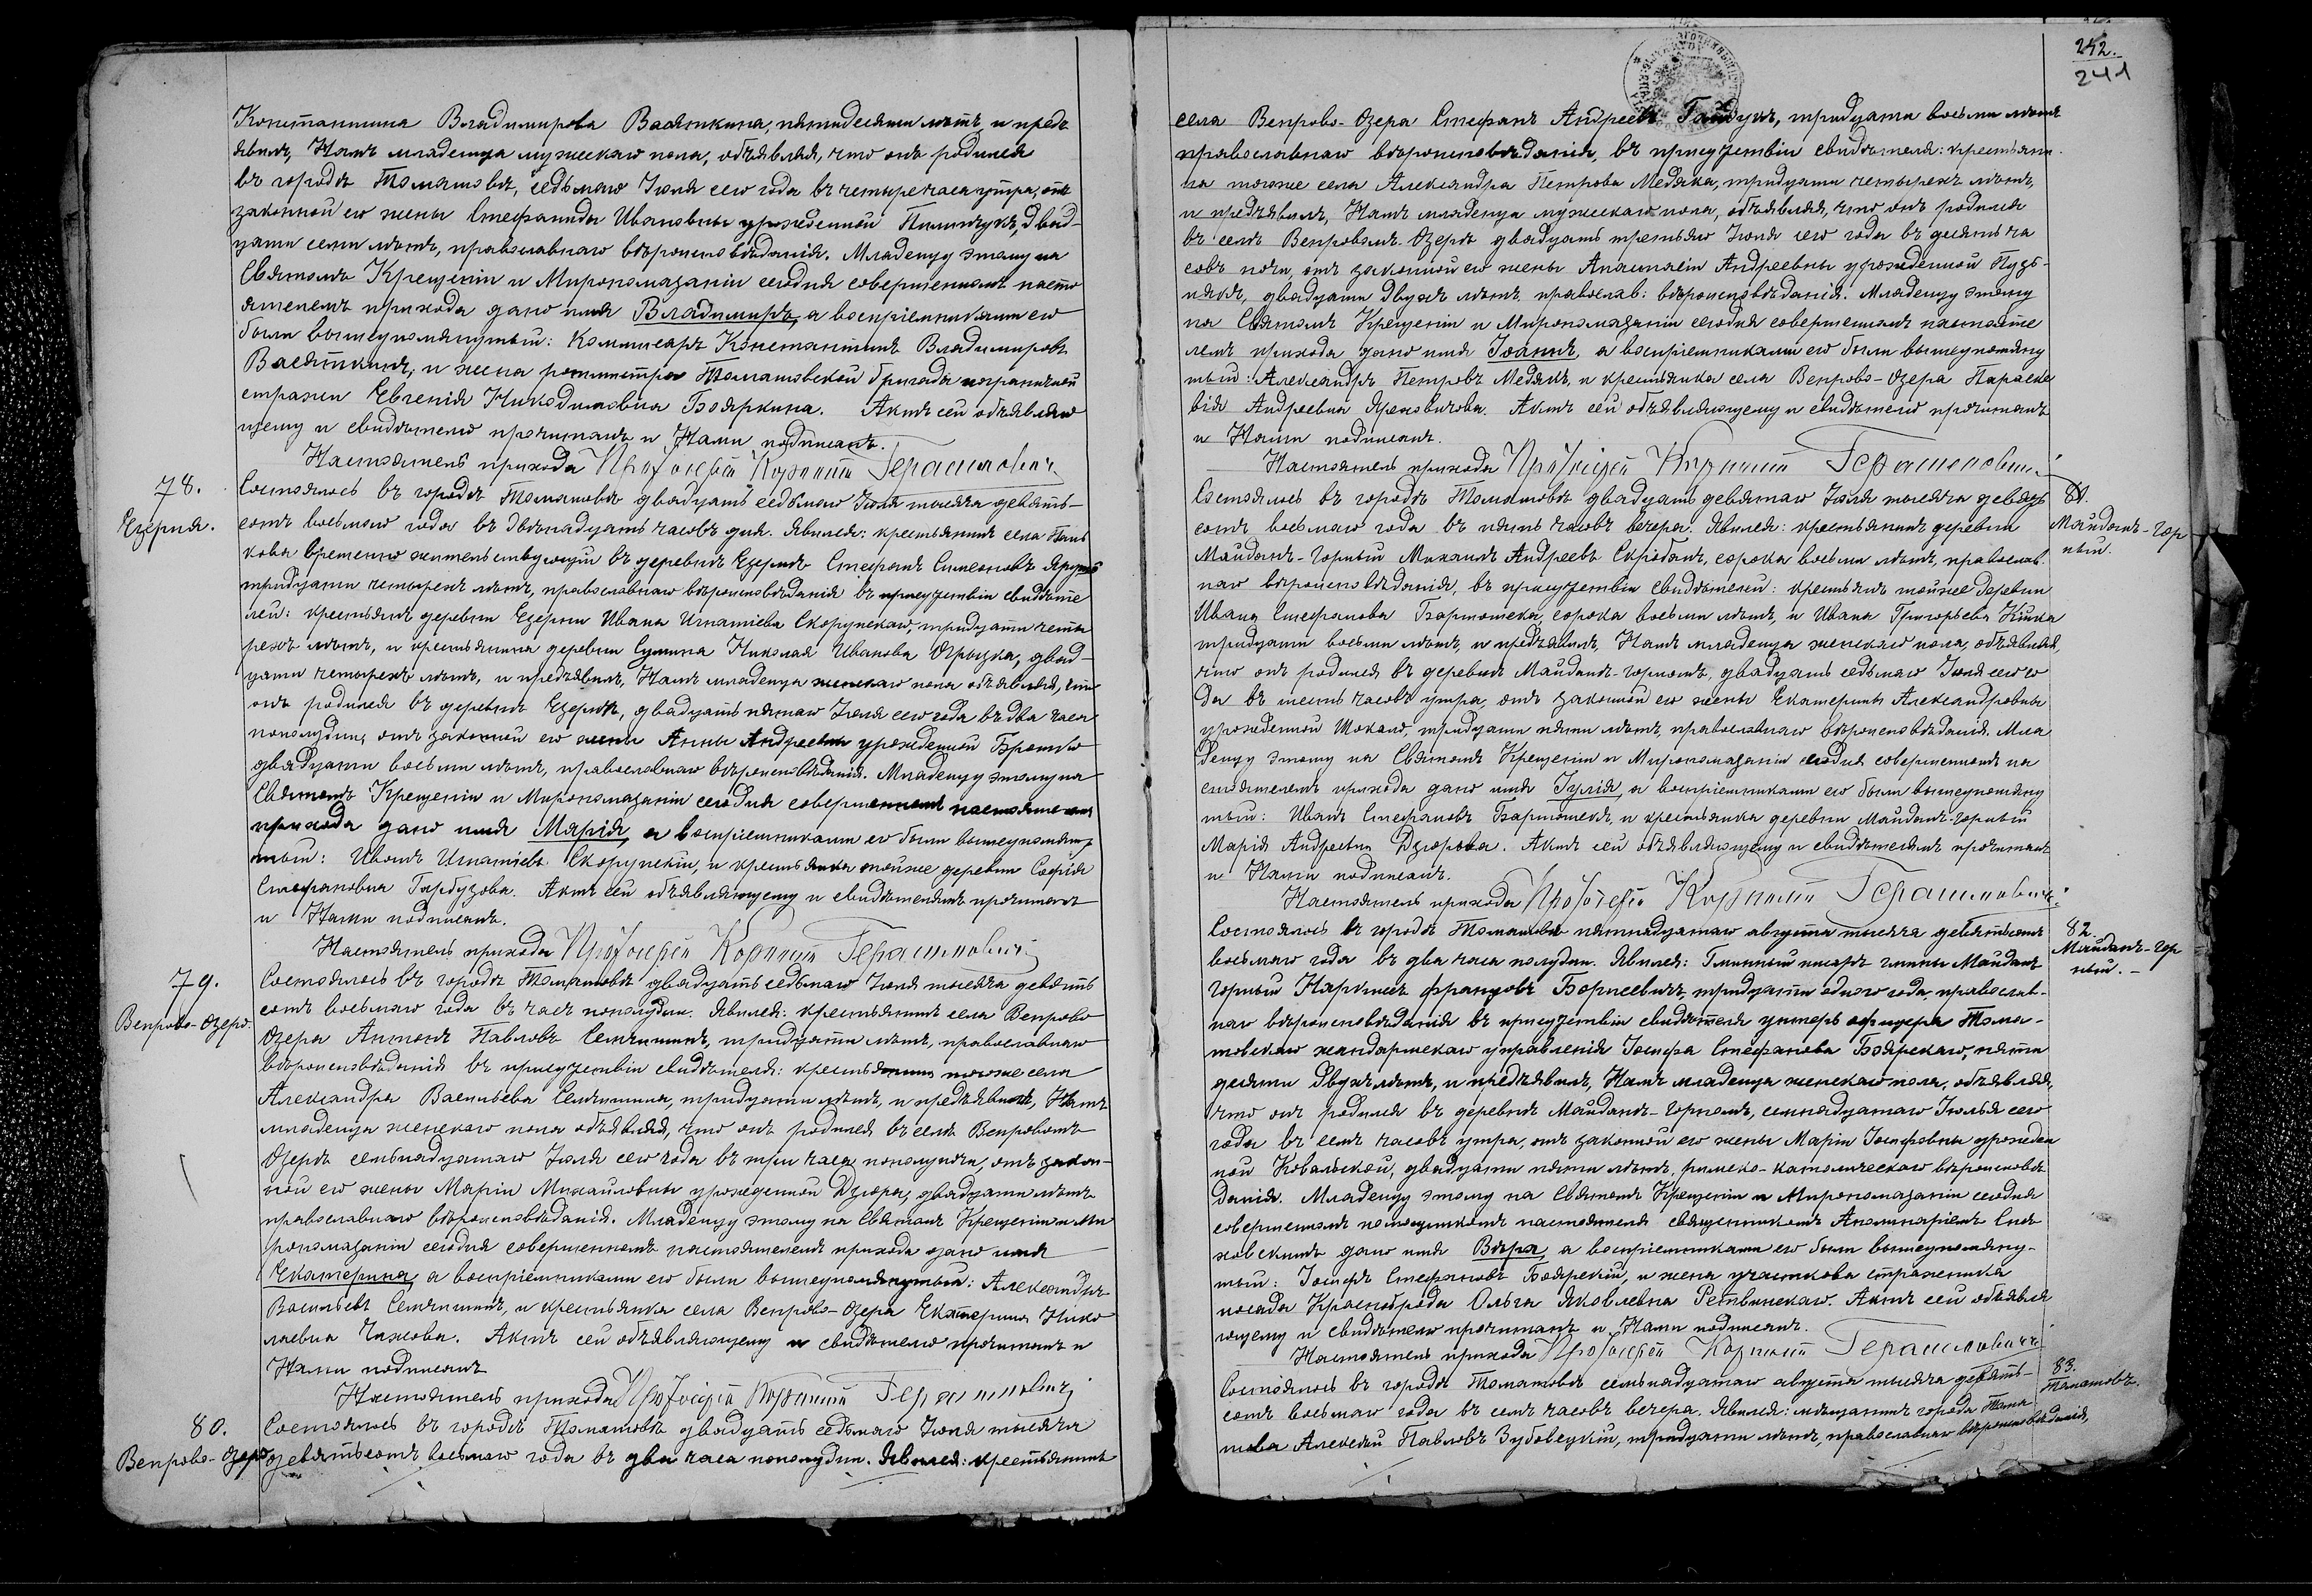 Константина Владимірова Васяткина, пятидесяти лѣтъ, и предъ
явилъ Намъ младенца мужескаго пола, объявляя, что онъ родился
въ городѣ Томашовѣ, седьмаго Іюля сего года въ четыре часа утра, отъ
законной его жены Стефаниды Ивановны урожденной Пилипчукъ, двад-
цати семи лѣтъ, православнаго вѣроисповѣданія. Младенцу этому на
Святомъ Крещеніи и Миропомазаніи сегодня совершенномъ насто
ятелемъ прихода дано имя Владиміръ, а воспріемниками его
были вышеупомянутый: Коммисаръ Константинъ Владиміровъ
Васяткинъ, и жена ротмистра Томашовской бригады пограничной
стражи Евгенія Никодимовна Бояркина. Актъ сей объявляю
щему и свидѣтелю прочитанъ и Нами подписанъ.
Настоятель прихода Протоіерей Корнилій Герашимовичъ
78.
Езерня.
Состоялось въ городѣ Томашовѣ двадцать седьмаго Іюля тысяча девять-
сотъ восьмаго года въ двѣнадцать часовъ дня. Явился: крестьянинъ села Пань
кова временно жительствующій въ деревнѣ Езернѣ Стефанъ Симеоновъ
тридцати четырехъ лѣтъ, православнаго вѣроисповѣданія въ присутствіи свидѣте
лей: крестьянъ деревни Езерни Ивана Игнатіева Скорупскаго, тридцати четы
рехъ лѣтъ, и крестьянина деревни Сумина Николая Иванова Грыцка, двад-
цати четырехъ лѣтъ, и предъявилъ, Намъ младенца женскаго пола объявляя, что
онъ родился въ деревнѣ Езернѣ, двадцать пятаго Іюля сего года въ два часа
пополудни, отъ законной его жены Анны Андреевны урожденной
двадцати восьми лѣтъ, православнаго вѣроисповѣданія. Младенцу этому на
Святомъ Крещеніи и Миропомазаніи сегодня совершенномъ настоятелемъ
прихода дано имя Марія, а воспріемниками его были вышеупомяну
тый: Иванъ Игнатіевъ Скорупскій, и крестьянка тойже деревни Софія
Стефановна Гарбузова. Актъ сей объявляющему и свидѣтелямъ прочитанъ
и Нами подписанъ.
Настоятель прихода Протоіерей Корнилій Герашимовичъ
79.
Вепрово-Озеро.
Состоялось въ городѣ Томашовѣ двадцать седьмаго Іюля тысяча девять
сотъ восьмаго года въ часъ пополудни. Явился: крестьянинъ села Вепрово
Озера Антонъ Павловъ Семчишинъ, тридцати лѣтъ, православнаго
вѣроисповѣданія въ присутствіи свидѣтеля: крестьянина тогоже села
Александра Васильева Семчишина, тридцати лѣтъ, и предъявилъ, Намъ
младенца женскаго пола объявляя, что онъ родился въ селѣ Вепровомъ
Озерѣ семьнадцатаго Іюля сего года въ три часа пополуночи, отъ закон-
ной его жены Маріи Михайловны урожденной Дзюра, двадцати лѣтъ
православнаго вѣроисповѣданія. Младенцу этому на Святомъ Крещеніи и Ми
ропомазаніи сегодня совершенномъ настоятелемъ прихода дано имя
Екатерина, а воспріемниками его были вышеупомянутый: Александръ
Васильевъ Семчишинъ, и крестьянка села Вепрово-Озера Екатерина Нико
лаевна Чижова. Актъ сей объявляющему и свидѣтелю прочитанъ и
Нами подписанъ
Настоятель прихода Протоіерей Корнилій Герашимовичъ
80.
Вепрово-Озеро
Состоялось въ городѣ Томашовѣ двадцать седьмаго Іюля тысяча
девятьсотъ восьмаго года въ два часа пополудни. Явился: крестьянинъ
242.
241
села Вепрово-Озера Стефанъ Андреевъ Гайдукъ, тридцати восьми лѣтъ
православнаго вѣроисповѣданія, въ присутствіи свидѣтеля: крестьяни
на тогоже села Александра Петрова Медяка, тридцати четырехъ лѣтъ,
и предъявилъ, Намъ младенца мужескаго пола, объявляя, что онъ родился
въ селѣ Вепровомъ-Озерѣ двадцать третьяго Іюля сего года въ десять ча
совъ ночи, отъ законной его жены Анастасіи Андреевны урожденной Пузь-
някъ, двадцати двухъ лѣтъ, православ: вѣроисповѣданія. Младенцу этому
на Святомъ Крещеніи и Миропомазаніи сегодня совершенномъ настояте
лемъ прихода дано имя Іоаннъ, а воспріемниками его были вышеупомяну
тый: Александръ Петровъ Медякъ, и крестьянка села Вепрово-Озера Параске
вія Андреевна Яремовичова. Актъ сей объявляющему и свидѣтелю прочитанъ
и Нами подписанъ.
Настоятель прихода Протоіерей Корнилій Герашимовичъ
81.
Майданъ-Гор
ный.
Состоялось въ городѣ Томашовѣ двадцать девятаго Іюля тысяча девять
сотъ восьмаго года въ пять часовъ вечера. Явился: крестьянинъ деревни
Майданъ-Горный Михаилъ Андреевъ Скробанъ, сорока восьми лѣтъ, православ.
наго вѣроисповѣданія, въ присутствіи свидѣтелей: крестьянъ тойже деревни
Ивана Стефанова Бартошека, сорока восьми лѣтъ, и Ивана Григорьева Кишка
тридцати восьми лѣтъ, и предъявилъ, Намъ младенца женскаго пола, объявляя,
что онъ родился въ деревнѣ Майданъ-Горномъ, двадцать седьмаго Іюля сего го
да въ шесть часовъ утра, отъ законной его жены Екатерины Александровны
урожденной Шокало, тридцати пяти лѣтъ, православнаго вѣроисповѣданія. Мла
денцу этому на Святомъ Крещеніи и Миропомазаніи сегодня совершенномъ на
стоятелемъ прихода дано имя Іулія, а воспріемниками его были вышеупомяну
тый: Иванъ Стефановъ Бартошекъ, и крестьянка деревни Майданъ-Горный
Марія Андреевна Дзюрова. Актъ сей объявляющему и свидѣтелямъ прочитанъ
и Нами подписанъ.
Настоятель прихода Протоіерей Корнилій Герашимовичъ
82.
Майданъ-Гор
ный.-
Состоялось въ городѣ Томашовѣ пятнадцатаго августа тысяча девятьсотъ
восьмаго года въ два часа полудни. Явился: Гминный писарь гмины Майданъ
Горный Наркисъ Францовъ Борисевичъ, тридцати одного года, православ-
наго вѣроисповѣданія въ присутствіи свидѣтеля унтеръ офицера Тома-
шовскаго жандармскаго управленія Іосифа Стефанова Боярскаго, пяти
десяти двухъ лѣтъ, и предъявилъ, Намъ младенца женскаго пола, объявляя,
что онъ родился въ деревнѣ Майданъ-Горномъ, семнадцатаго Іюля сего
года въ семь часовъ утра, отъ законной его жены Маріи Іосифовны урожден
ной Ковальской, двадцати пяти лѣтъ, римско-католическаго вѣроисповѣ
данія. Младенцу этому на Святомъ Крещеніи и Миропомазаніи сегодня
совершенномъ помощникомъ настоятеля священникомъ Аполинаріемъ Сня
ховскимъ дано имя Вѣра, а воспріемниками его были вышеупомяну-
тый: Іосифъ Стефановъ Боярскій, и жена участкова стражника
посада Красноброда Ольга Яковлевна Ретвинскаго. Актъ сей объявля
ющему и свидѣтелю прочитанъ и Нами подписанъ.
Настоятель прихода Протоіерей Корнилій Герашимовичъ
83.
Томашовъ.
Состоялось въ городѣ Томашовѣ семьнадцатаго августа тысяча девять-
сотъ восьмаго года въ семь часовъ вечера. Явился: мѣщанинъ города Тома
шова Алексѣй Павловъ Зубовецкій, тридцати лѣтъ, православнаго вѣроисповѣданія,